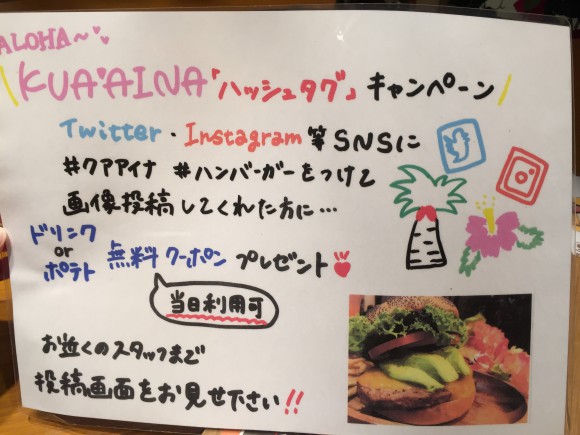 ALOHA~
KUA'AINA「ハッシュタグ」キャンペーン
Twitter・Instagram等SNSに
#クアアイナ #ハンバーガーをつけて
画像投稿してくれた方に…
ドリンク
or
ポテト
無料クーポン プレゼント
当日利用可
お近くのスタッフまで
投稿画面をお見せ下さい!!